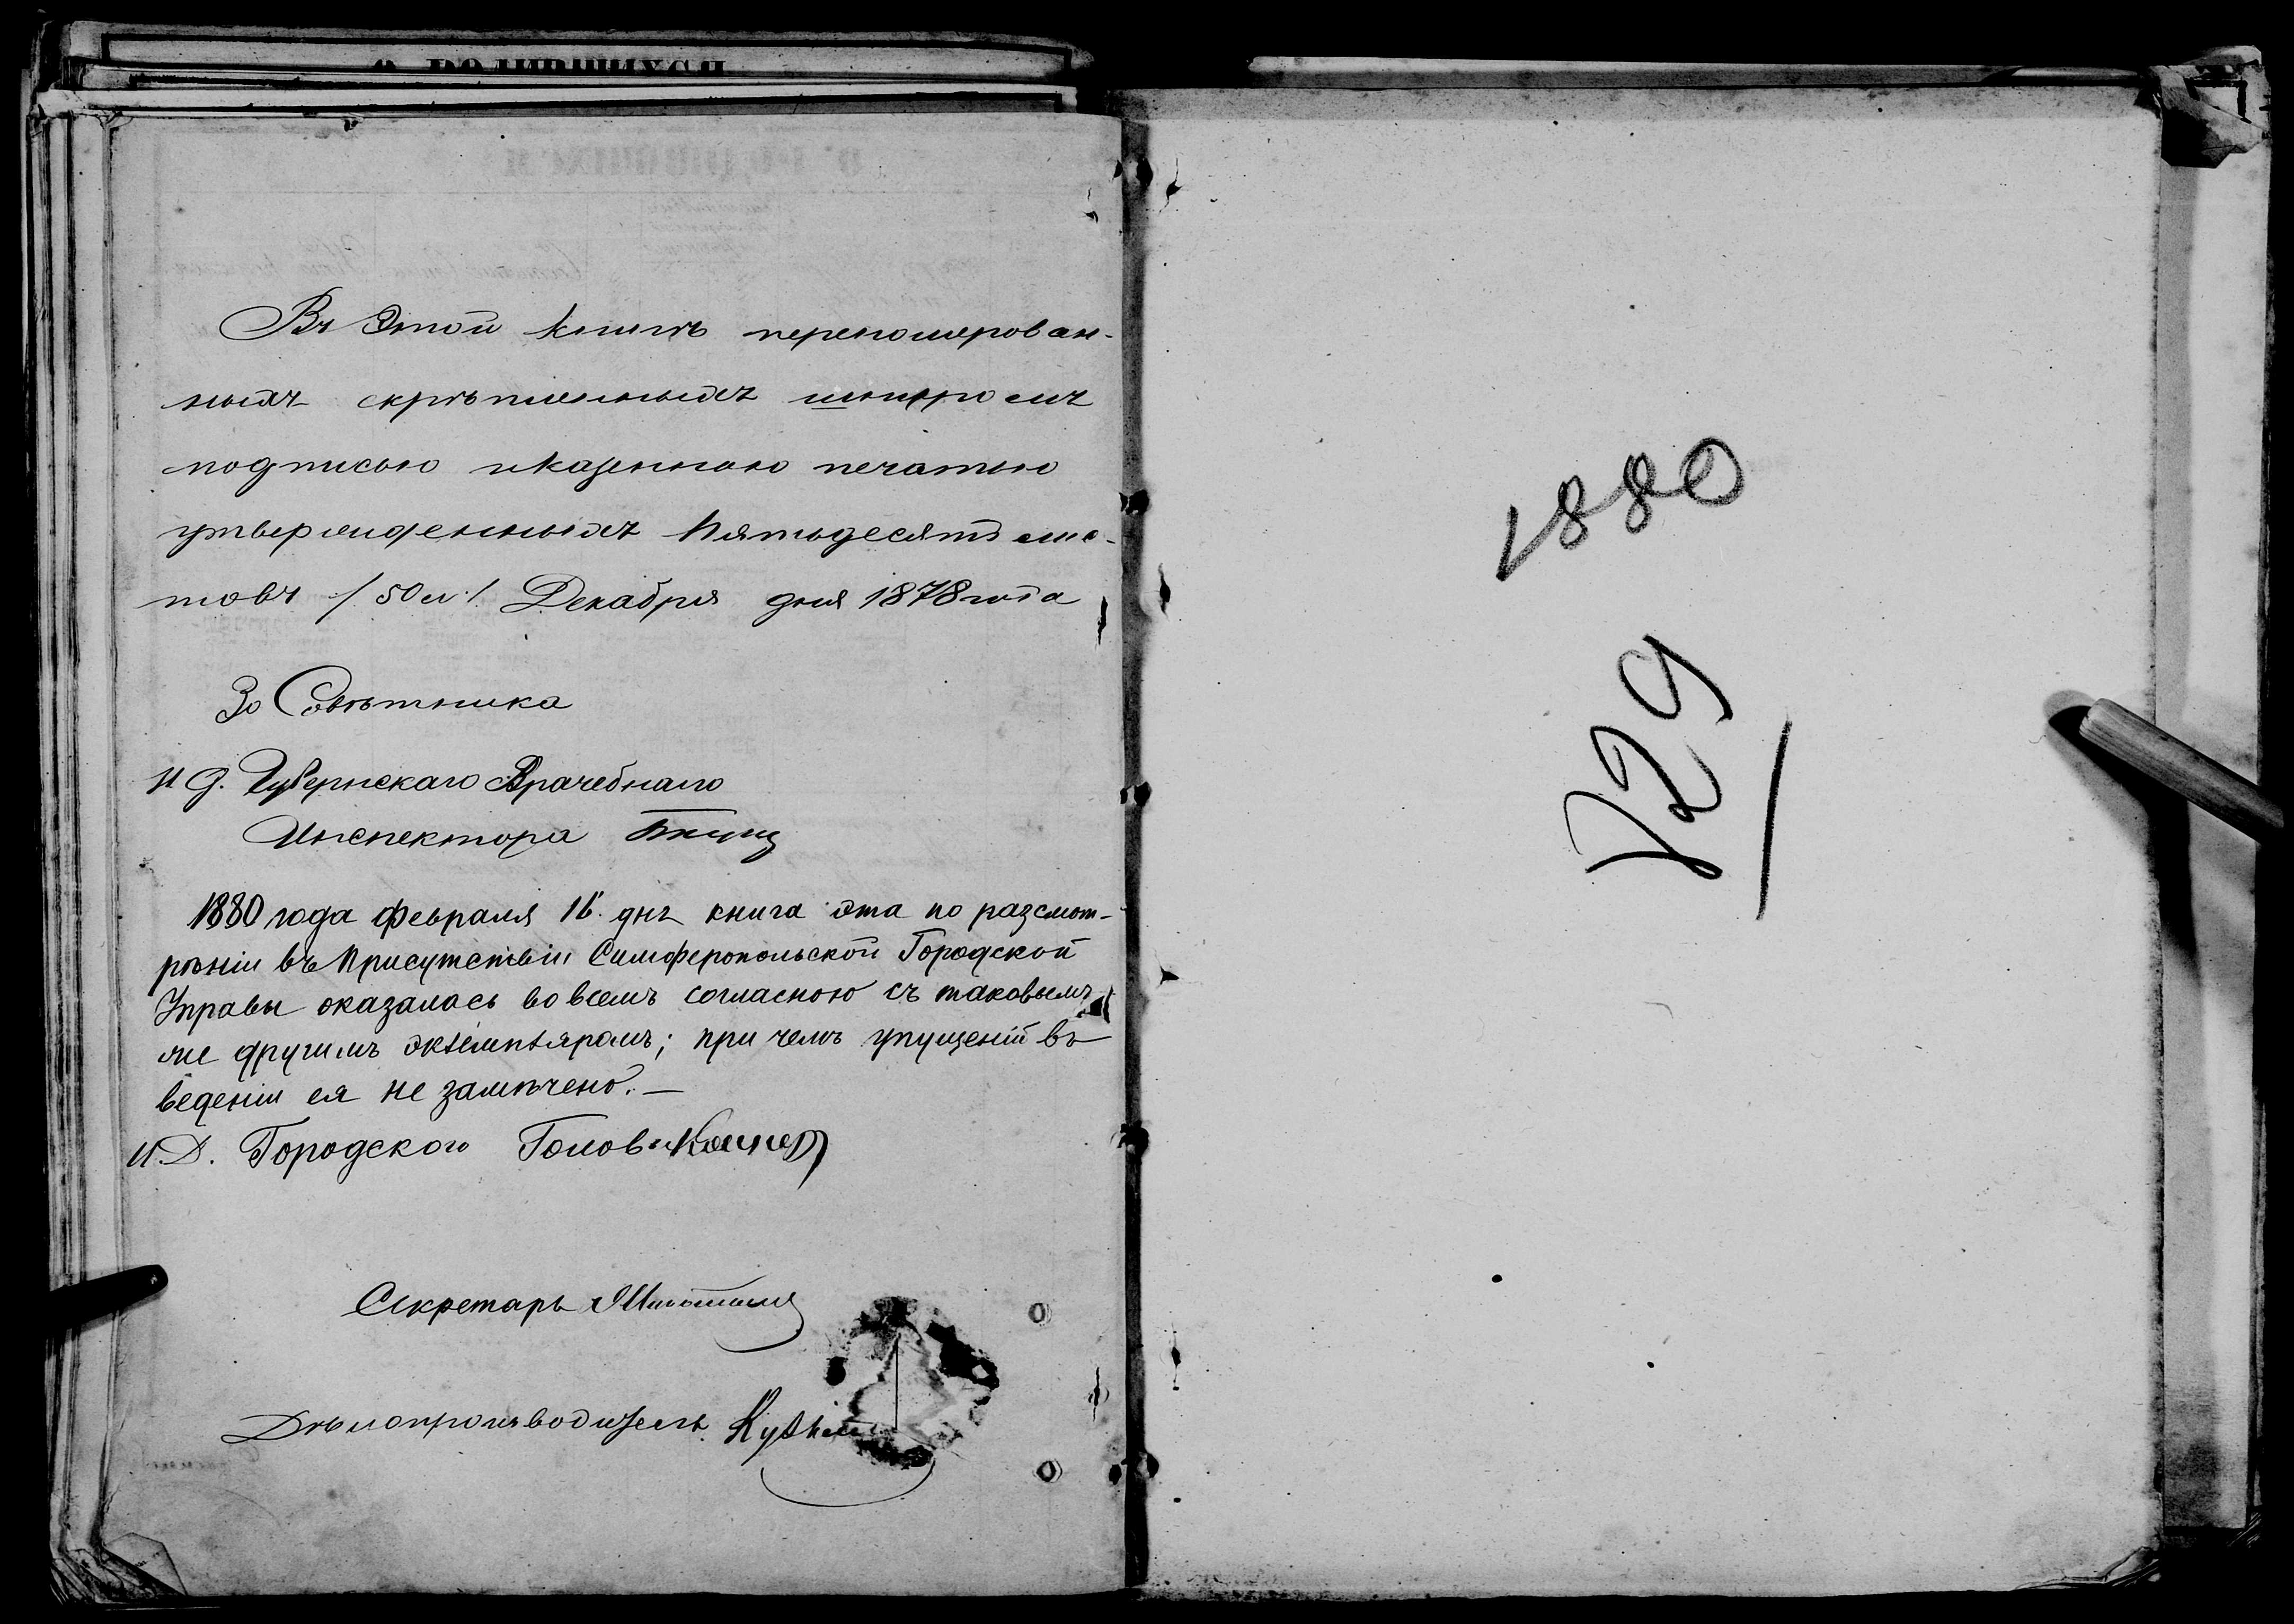 О РОДИВШИХСЯ
Въ Этой книгѣ перепомерован-
ныхъ скрѣпленныхъ шнуромъ
подписью и казенною печатью
утвержденныхъ Пятьдесятъ лис-
товъ /50 л./ Декабря дня 1878 года
За Совѣтника
И д. Губернскаго Врачебнаго
Инспектора
1880 года Февраля 16 дня книга эта по разсмот-
рѣніи въ Присутствіи Симферопольской Городской
Управы оказалась во всемъ согласною съ таковымъ
же другимъ экземпляромъ; при чемъ упущеній въ
веденіи ея не замѣчено. —
И.Д. Городского Головы
Секретарь
Дѣлопроизводитель
1880
729